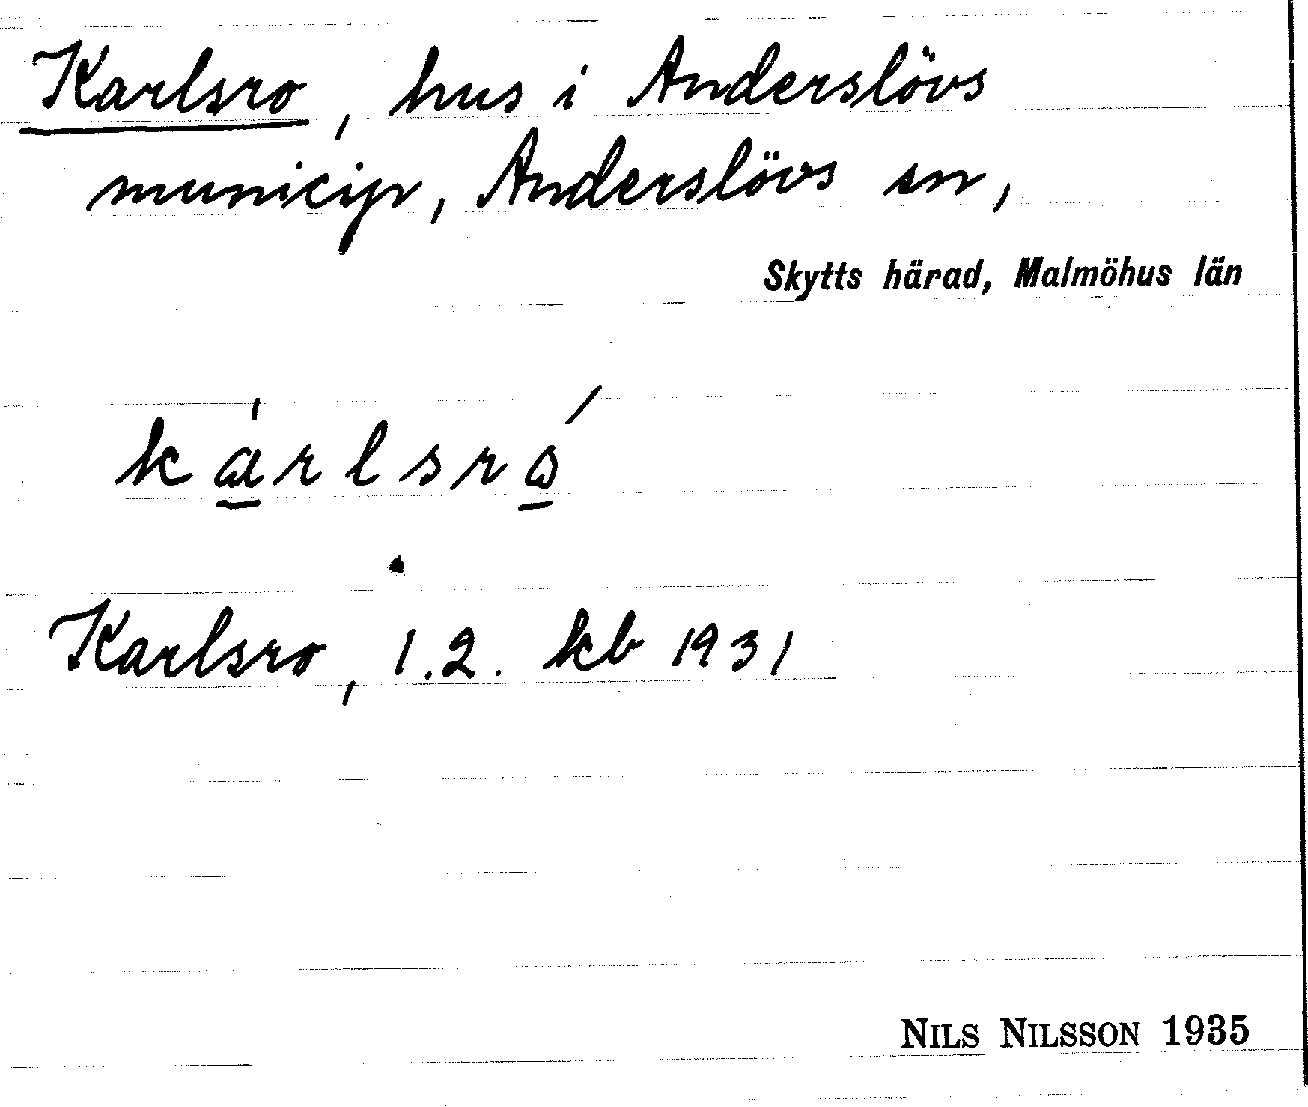 Karlsro, hus i Anderslövs
municip, Anderslövs sn,
Skytts härad, Malmöhus län
karlsro
Karlsro, 1.2. kb 1931
NILS NILSSON 1935